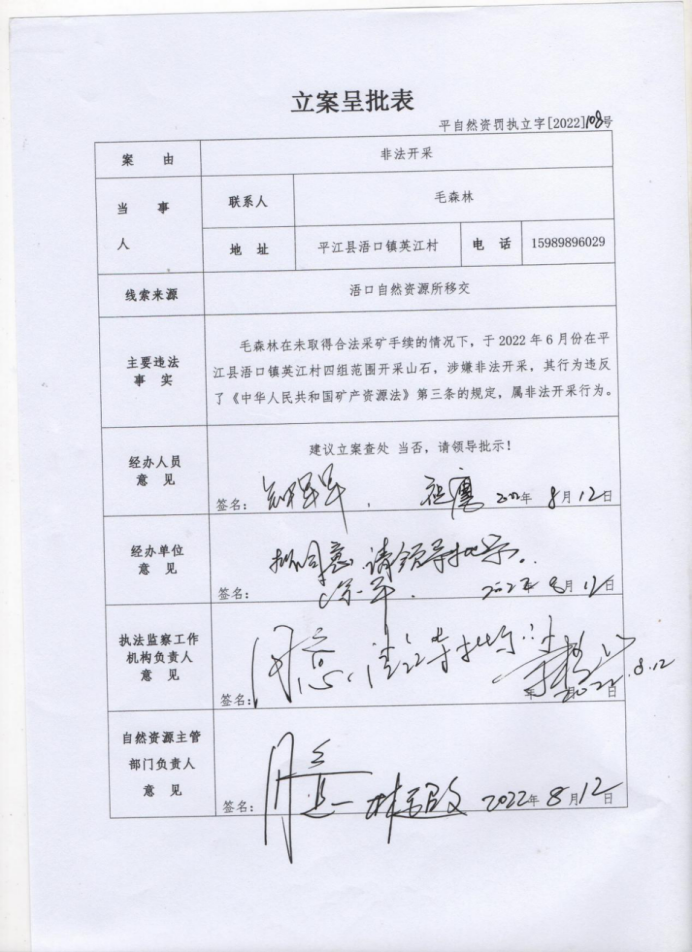 立案呈批表
平自然资罚执立字[2022]108号
案 由
非法开采
当 事 人
联系人
毛森林
地 址
平江县浯口镇英江村
电 话
15989896029
线索来源
浯口自然资源所移交
主要违法
事 实
毛森林在未取得合法采矿手续的情况下，于 2022 年 6 月份在平
江县浯口镇英江村四组范围开采山石，涉嫌非法开采，其行为违反
了《中华人民共和国矿产资源法》第三条的规定，属非法开采行为。
经办人员
意 见
建议立案查处 当否，请领导批示！
签名：
年 8月12日
经办单位
意 见
拟同意，请领导批示。
签名：
2022年 8月12日
执法监察工作
机构负责人
意 见
同意，请
签名：
年 月 日
2022.8.12
自然资源主管
部门负责人
意 见
同意
签名：
2022年 8月12日